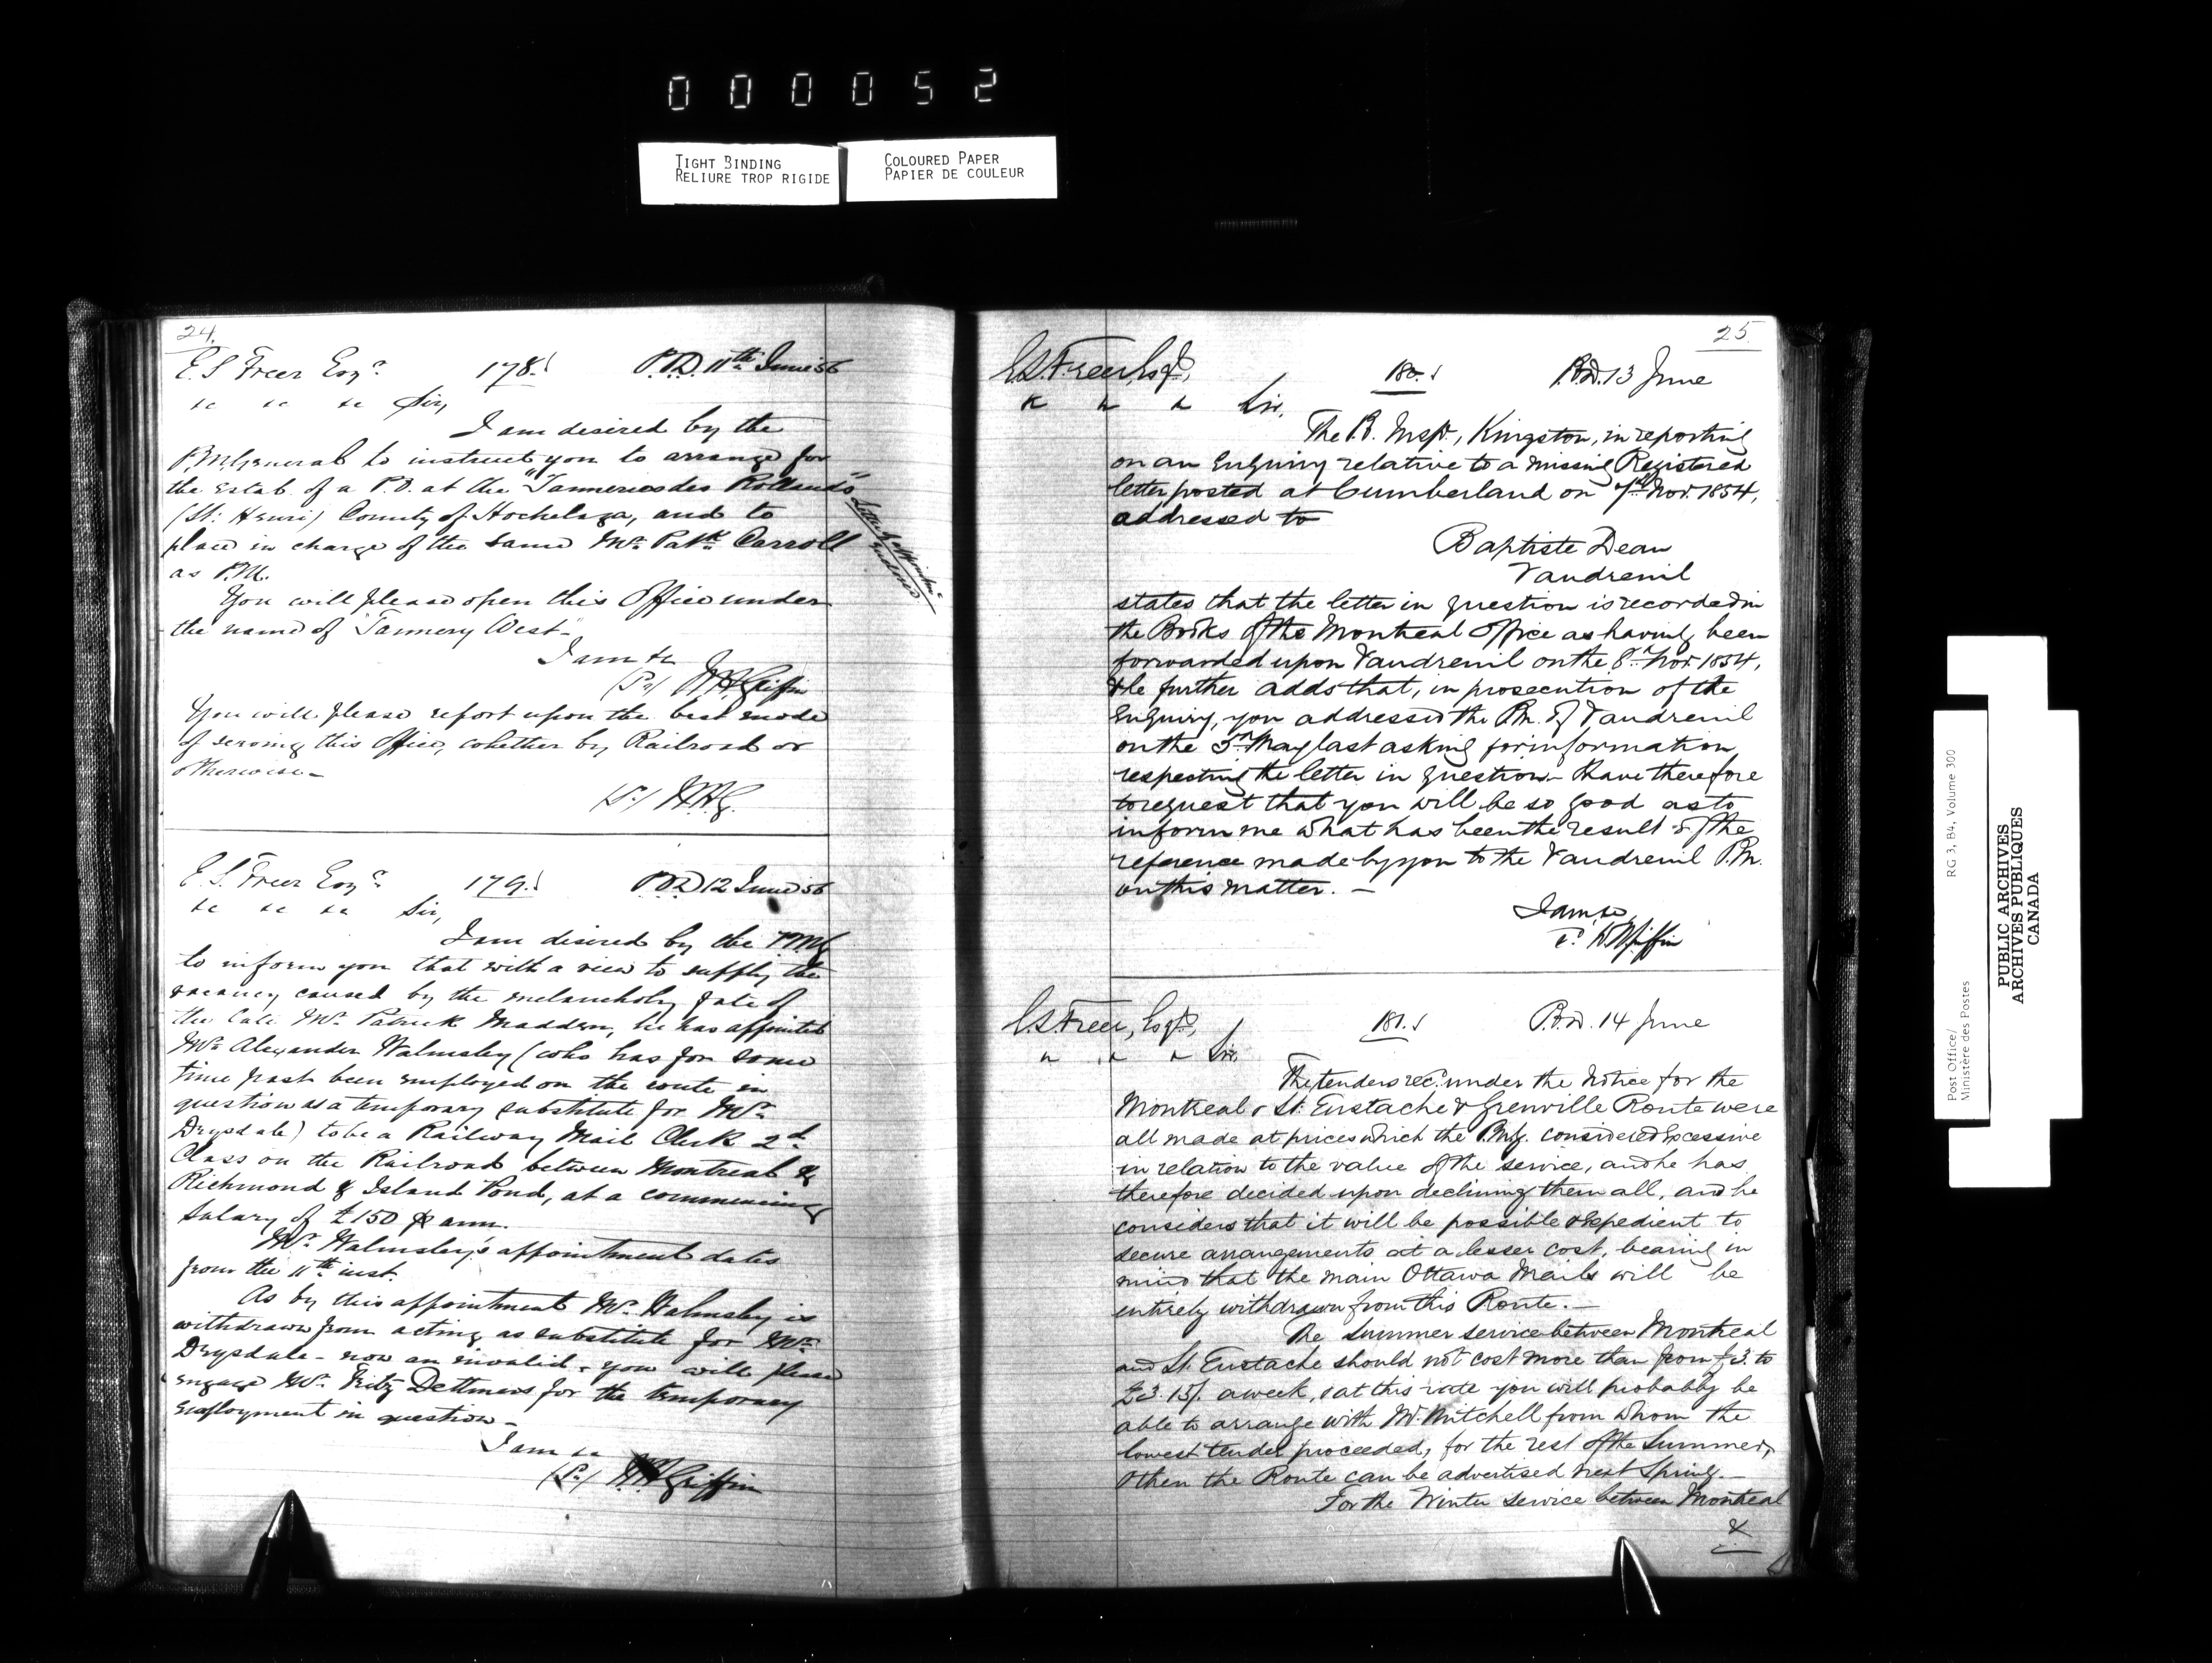 000052
TIGHT BINDING
RELIURE TROP RIGIDE
COLOURED PAPER
PAPIER DE COULEUR
24.
E. S. Freer Esqre 178. P.O.D. 11th June 56
&c &c &c Sir,
I am desired by the
P.M. General to instruct you to arrange for
the estab. of a P.O. at the "Tanneries des Rollands"
(St. Henri) County of Hochelaga, and to
place in charge of the same Mr. Patk. Carroll
as P.M.
You will please open this Office under
the name of "Tannery West"-
I am &c
(Sd) W.H. Griffin
You will please report upon the best mode
of serving this Office, whether by Railroad or
otherwise-
(Sd) W.H.G.
E. S. Freer Esqre 179. P.O.D. 12 June 56
&c &c &c Sir,
I am desired by the P.M.G
to inform you that with a view to supply the
vacancy caused by the melancholy fate of
the late Mr. Patrick Madden, he has appointed
Mr. Alexander Walmsley (who has for some
time past been employed on the route in
question as a temporary substitute for Mr.
Drysdale) to be a Railway Mail Clerk 2d
Class on the Railroad between Montreal &
Richmond & Island Pond, at a commencing
salary of £150 per ann.
Mr. Walmsley's appointment dates
from the 11th inst.
As by this appointment Mr. Walmsley is
withdrawn from acting as substitute for Mr.
Drysdale - now an invalid - you will please
engage Mr. Fritz Dettmers for the temporary
employment in question-
I am &c
(Sd) W.H. Griffin
25.
E.S. Freer, Esqr, 180. P.O.D. 13 June
" " " Sir.
The P.O. Inspr., Kingston, in reporting
on an enquiry relative to a missing Registered
letter posted at Cumberland on 7th Nov. 1854,
addressed to
Baptiste Dean
Vaudreuil
states that the letter in question is recorded in
the Books of the Montreal Office as having been
forwarded upon Vaudreuil on the 8th Nov. 1854,
& he further adds that, in prosecution of the
enquiry, you addressed the P.M. of Vaudreuil
on the 5th May last asking for information
respecting the letter in question- I have therefore
to request that you will be so good as to
inform me what has been the result of the
reference made by you to the Vaudreuil P.M.
on this matter. -
I am, &c,
Sd. W.H. Griffin
E.S. Freer, Esqr, 181. P.O.D. 14 June
" " " Sir.
The tenders recd. under the notice for the
Montreal & St. Eustache & Grenville Route were
all made at prices which the P.M.G. considered excessive
in relation to the value of the service, and he has
therefore decided upon declining them all, and he
considers that it will be possible & expedient to
secure arrangements at a lesser cost, bearing in
mind that the main Ottawa Mails will be
entirely withdrawn from this Route.-
The Summer service between Montreal
and St. Eustache should not cost more than from £3. to
£3.15/. a week, & at this rate you will probably be
able to arrange with Mr. Mitchell from whom the
lowest tender proceeded, for the rest of the Summer,
& then the Route can be advertised next Spring.-
For the Winter service between Montreal
&
Post Office/
Ministère des Postes
RG 3, B4, Volume 300
PUBLIC ARCHIVES
ARCHIVES PUBLIQUES
CANADA